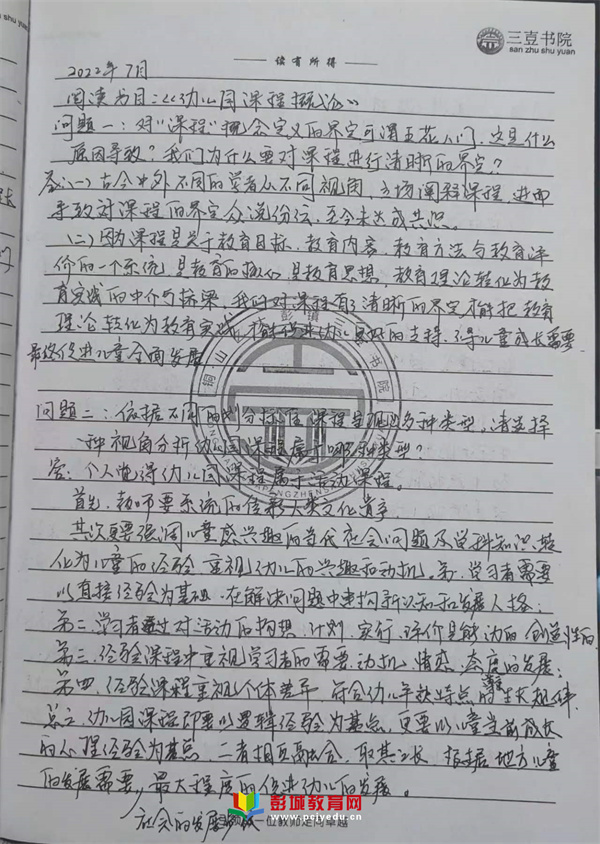 三壹书院
san zhu shu yuan
读有所得
2022年7月
阅读书目:《幼儿园课程概论》
问题一:对"课程"概念定义的界定可谓五花八门,这是什么
原因导致?我们为什么要对课程进行清晰的界定?
答:(一)古今中外不同的学者从不同视阈、立场阐释课程,进而
导致对课程的界定众说纷纭,至今未达成共识。
(二)因为课程是关于教育目标、教育内容、教育方法与教育评
价的一个系统,是教育的核心,是教育思想,教育理论转化为教
育实践的中介与桥梁,我们对课程有了清晰的界定才能把教育
理论转化为教育实践,才能促进幼儿更好的支持,得儿童成长需要
最终促进儿童全面发展
问题二:依据不同的划分标准课程呈现出多种类型,请选择
一种视角分析幼儿园课程属于哪种类型?
答:个人觉得幼儿园课程属于活动课程。
首先,教师要系统的传影人类文化遗产
其次更要强调儿童感兴趣的当代社会问题及学科知识转
化为儿童的经验,重视幼儿的兴趣和动机。第一学习者需要
以直接经验为基础,在解决问题中建构新认知和发展人格;
第二,学习者通过对活动的构想、计划、实行、评价是能动的创造性的
第三,经验课程中重视学习者的需要、动机、情感、态度的发展;
第四,经验课程重视个体差异,符合幼儿年龄特点的生长规律
总之,幼儿园课程即要以逻辑经验为基点,更要以儿童当前成长
的心理经验为基点,二者相互融合,取其之长,根据地方儿童
的发展需要,最大程度的促进幼儿的发展。
社会的发展
彭城教育网
www.pcjyedu.cn
一位教师走向卓越